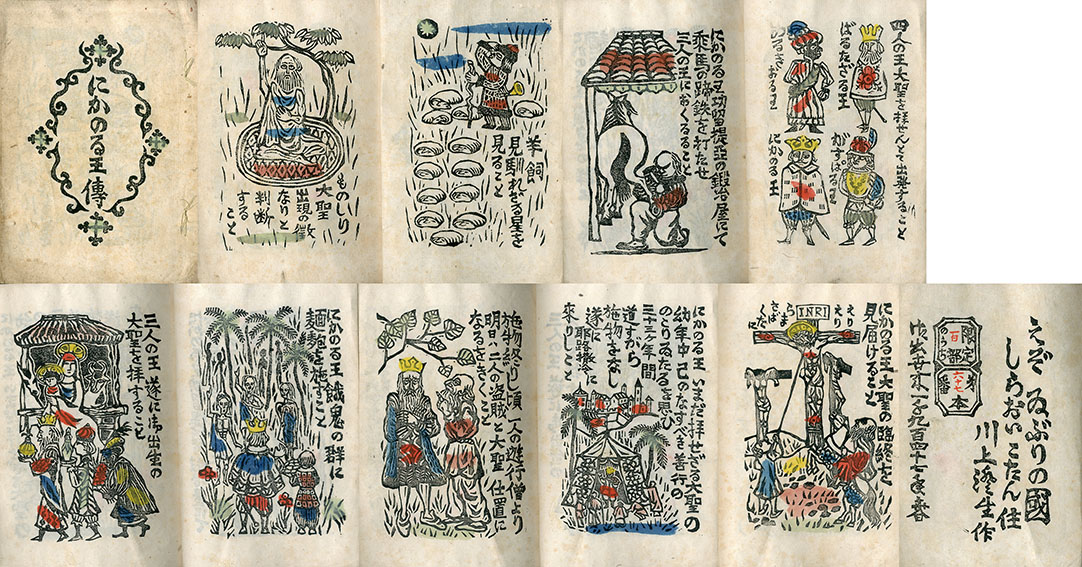 にかのる王傳
ものしり
大聖
出現の徴
なりと
判断
する
こと
羊飼
見馴れざる星を
見ること
乗馬の蹄鉄を打たせ
三人の王におくるること
四人の王大聖を拝せんとて出発すること
ばるたざる王
めるきおる王
がすぱる王
にかのる王
三人の王 遂に御出生の
大聖を拝すること
にかのる王餓鬼の群に
麺麭を施すこと
施物終りし頃 一人の遊行僧より
明日、二人の盗賊と大聖 仕置に
なるときくこと
にかのる王 いまだ拝せざる大聖の
幼年中 己のなすべき善行の
のこりゐたるを思ひ
三十三ヶ年間
道すから
施物をなし
遂に
耶路撒冷に
來りしこと
にかのる王大聖の臨終を
見届けること
INRI
えり
えり
らま
さば
くたに
えぞ ゐぶりの國
しらおいこたん住
川上澄生作
限定
百部
のうち
第
六十七
番
本
一千九百四十七年春